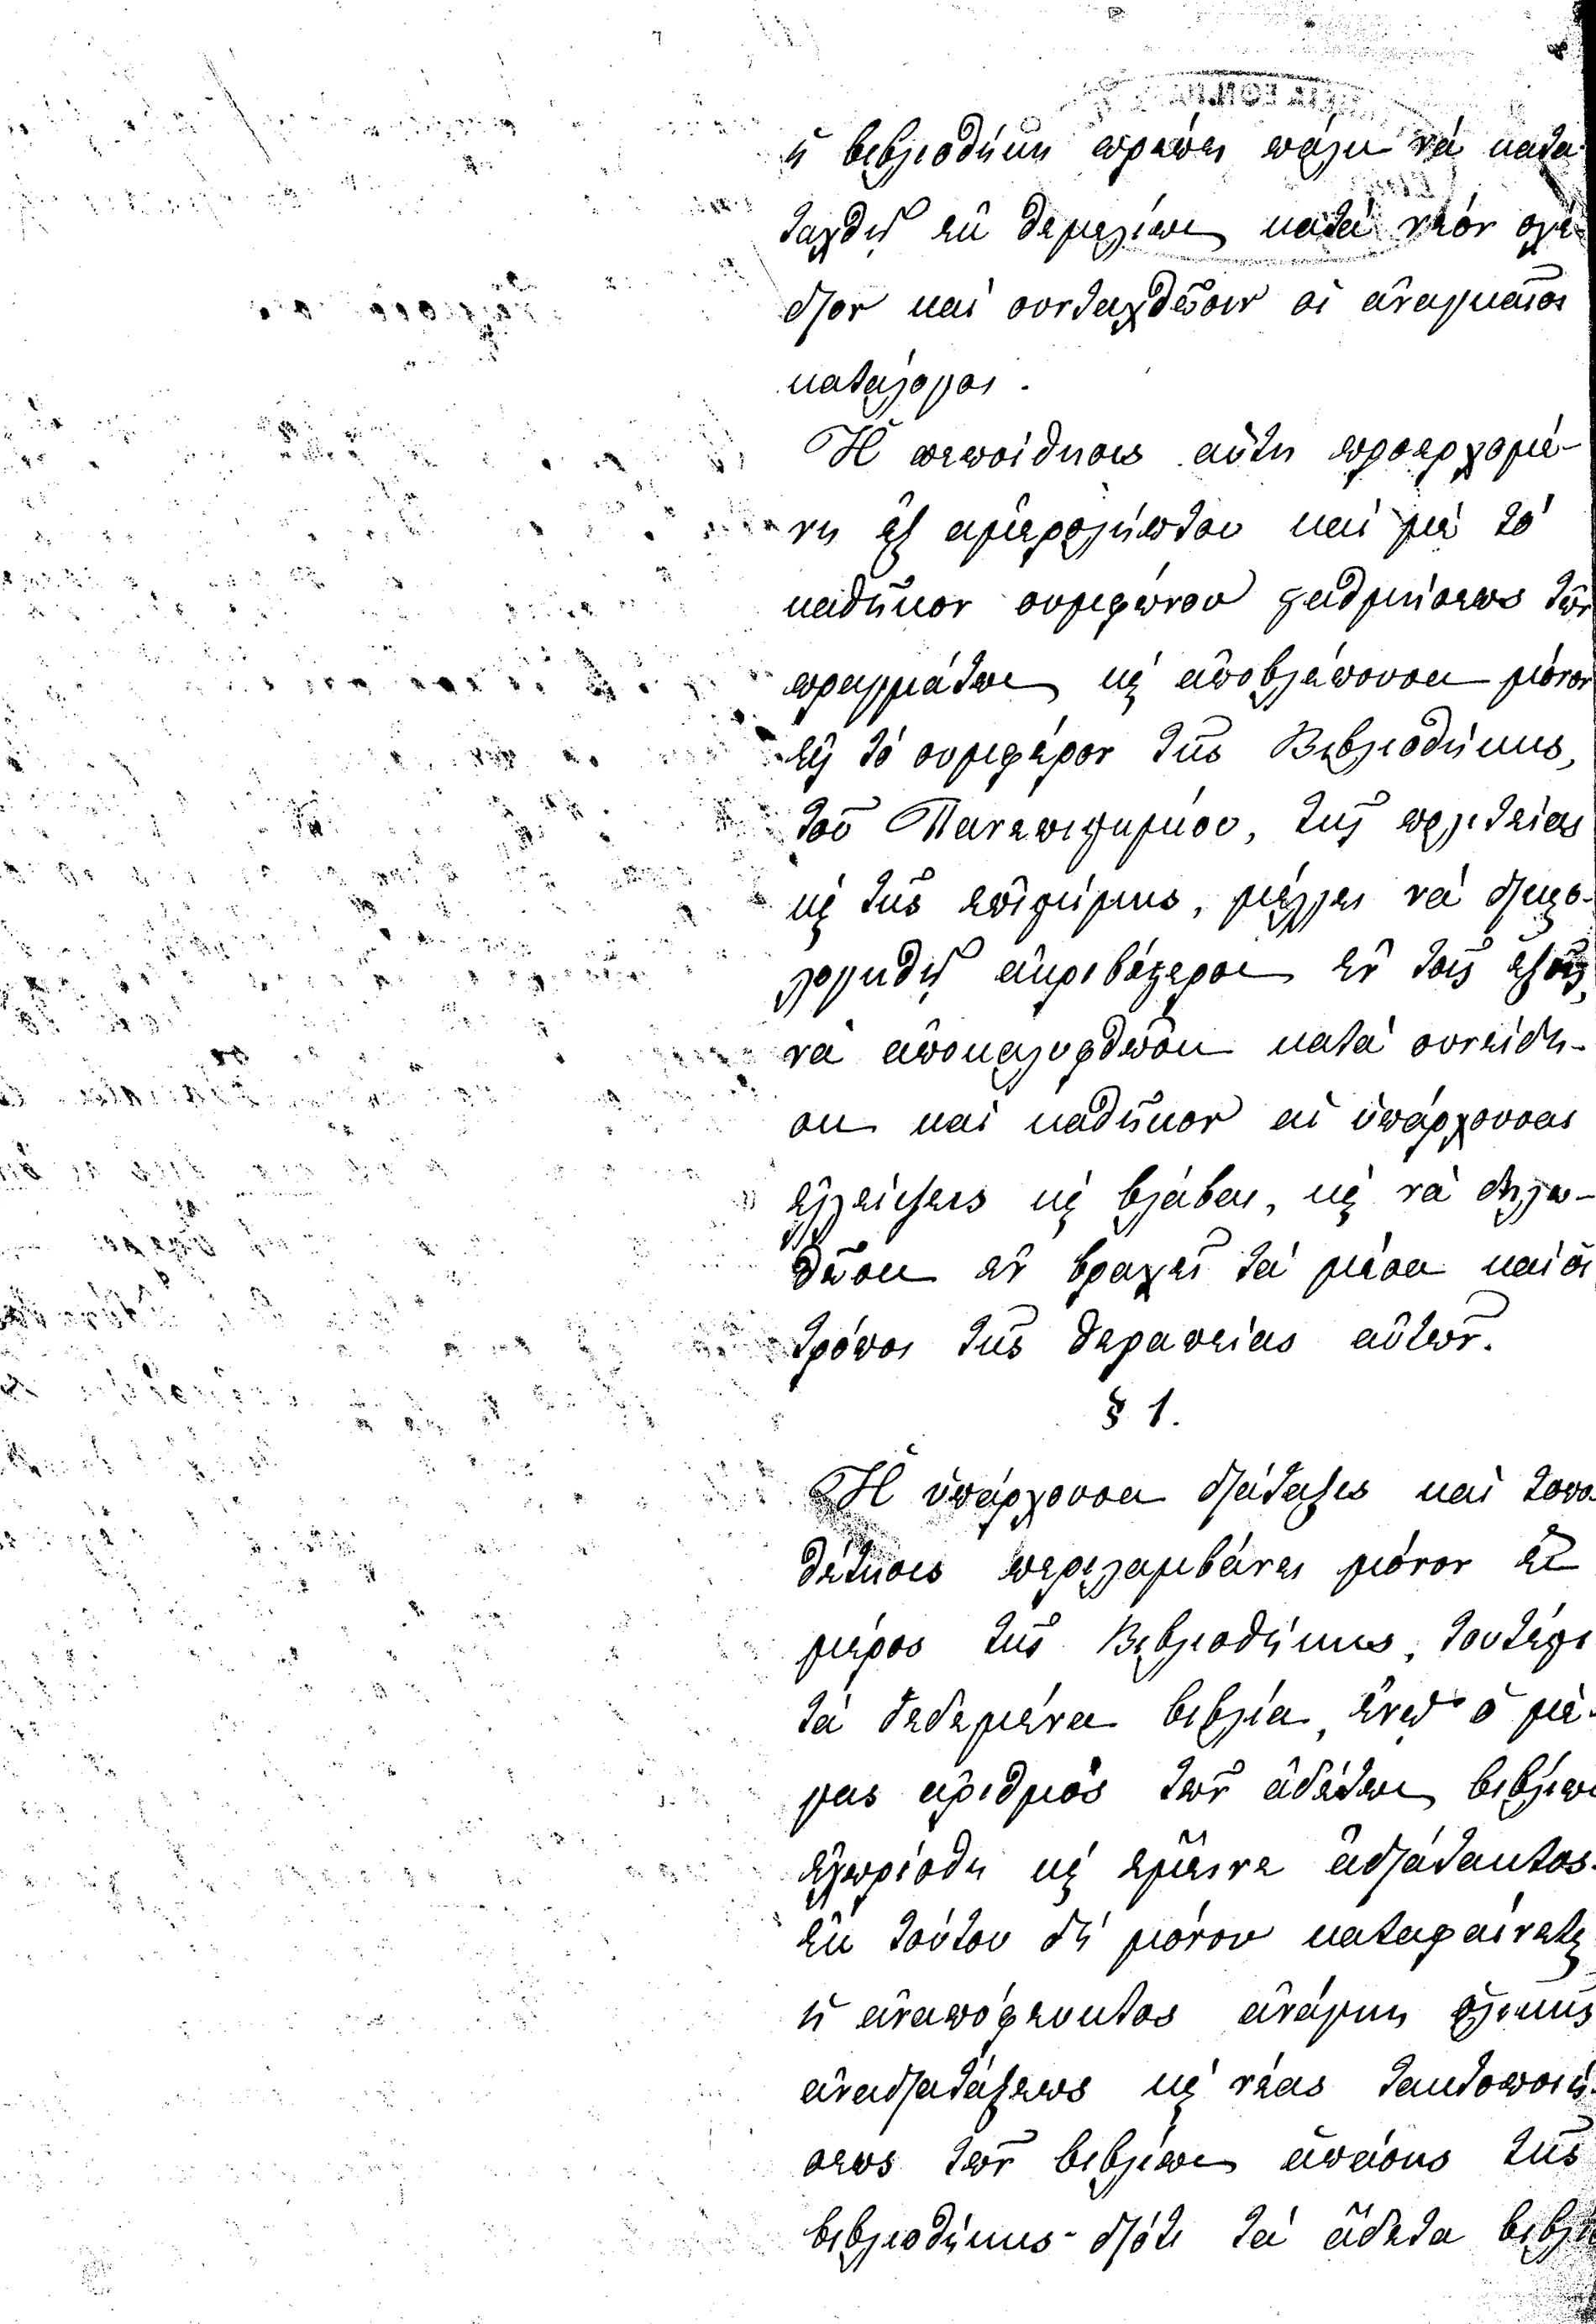 ἡ βιβλιοθήκη πρέπει πάλιν νά κατα-
ταχθῇ ἐκ θεμελίων κατά νέον σχέ-
διον καί συνταχθῶσιν οἱ ἀναγκαῖοι
κατάλογοι.
Ἡ πεποίθησις αὕτη προερχομέ-
νη ἐξ ἀμερολήπτου καί μέ τό
καθῆκον συμφώνου σταθμήσεως τῶν
πραγμάτων κ̀ ἀποβλέπουσα μόνον
εἰς τό συμφέρον τῆς Βιβλιοθήκης,
τοῦ Πανεπιστημίου, τῆς πολιτείας
κ̀ τῆς ἐπιστήμης, μέλλει νά δικαιο-
λογηθῇ ἀκριβέστερον ἐν τοῖς ἑξῆς,
νά ἀποκαλυφθῶσιν κατά συνείδη-
σιν καί καθῆκον αἱ ὑπάρχουσαι
ἐλλείψεις κ̀ βλάβαι, κ̀ νά δηλω-
θῶσιν ἐν βραχεῖ τά μέσα καί οἱ
τρόποι τῆς θεραπείας αὐτῶν.
§ 1.
Ἡ ὑπάρχουσα διάταξις καί τοπο-
θέτησις περιλαμβάνει μόνον ἕν
μέρος τῆς Βιβλιοθήκης, τουτέστι
τά δεδεμένα βιβλία, ἐνῷ ὁ μέ-
γας ἀριθμός τῶν ἀδέτων βιβλίων
ἐχωρίσθη κ̀ ἔμεινε ἀδιάτακτος.
Ἐκ τούτου δή μόνου καταφαίνεται
ἡ ἀναπόφευκτος ἀνάγκη ὁλικῆς
ἀναδιατάξεως κ̀ νέας τακτοποιή-
σεως τῶν βιβλίων ἁπάσης τῆς
βιβλιοθήκης· διότι τά ἄδετα βιβλία